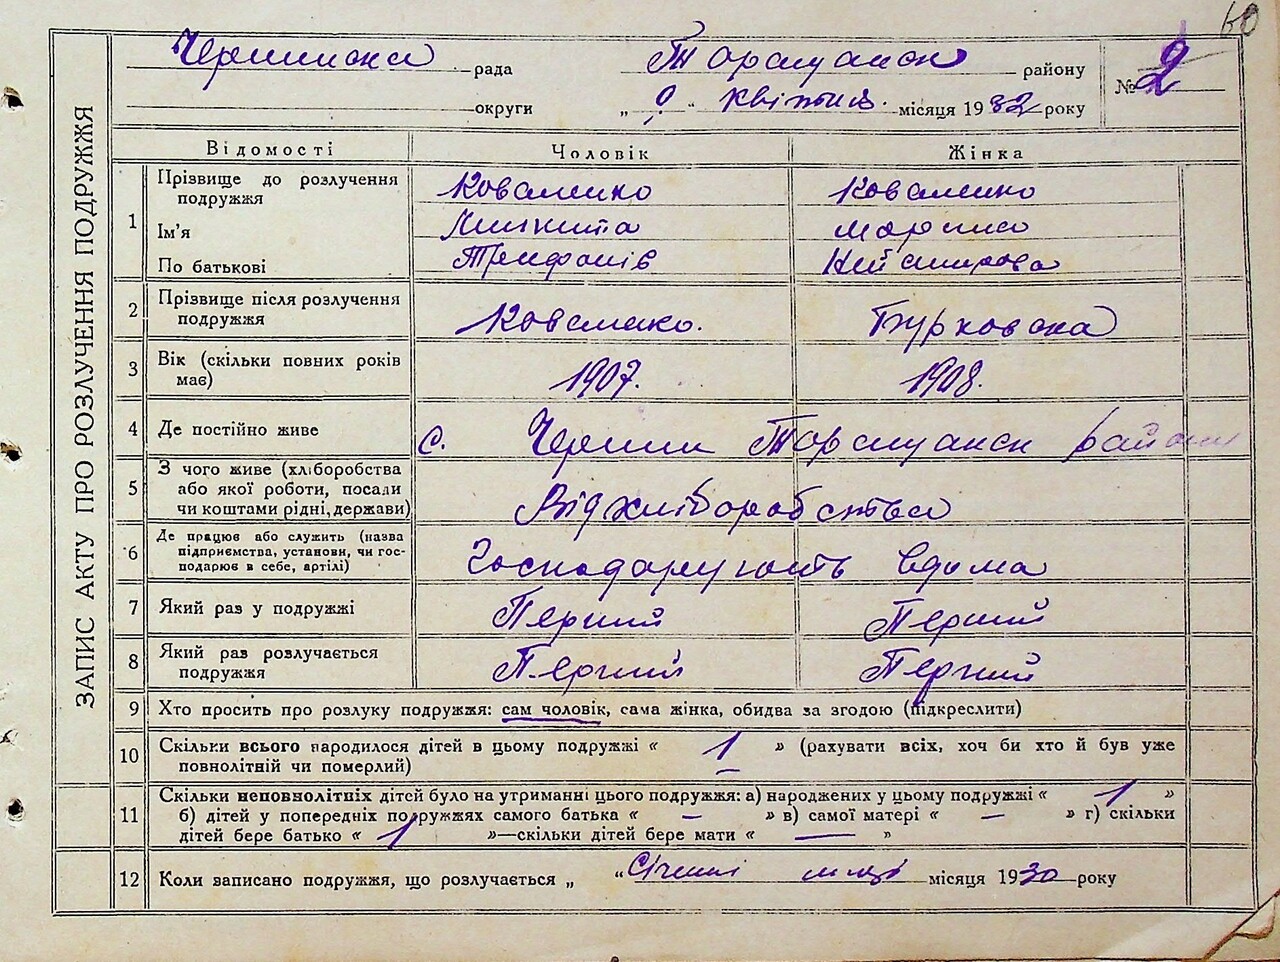 60
ЗАПИС АКТУ ПРО РОЗЛУЧЕННЯ ПОДРУЖЖЯ
рада районУ № 2
округи „ 9 " квітня місяця 1932 року
Відомості Чоловік Жінка
1 Прізвище до розлучення подружжя Коваленко Коваленко
Ім'я Микита Марина
По батькові Трифонів
2 Прізвище після розлучення подружжя Коваленко. Бурковска
3 Вік (скільки повних років має) 1907. 1908.
4 Де постійно живе с. району
5 З чого живе (хліборобства або якої роботи, посади чи коштами рідні, держави) Від хліборобства
6 Де працює або служить (назва підприємства, установи, чи господарює в себе, артілі) Господарують вдома
7 Який раз у подружжі Перший Перший
8 Який раз розлучається подружжя Перший Перший
9 Хто просить про розлуку подружжя: сам чоловік, сама жінка, обидва за згодою (підкреслити)
10 Скільки всього народилося дітей в цьому подружжі « 1 » (рахувати всіх, хоч би хто й був уже
повнолітній чи померлий)
11 Скільки неповнолітніх дітей було на утриманні цього подружжя: а) народжених у цьому подружжі « 1 »
б) дітей у попередніх подружжях самого батька « — » в) самої матері « — » г) скільки
дітей бере батько « 1 »—скільки дітей бере мати « — »
12 Коли записано подружжя, що розлучається „ " Січені місяця 1930 року